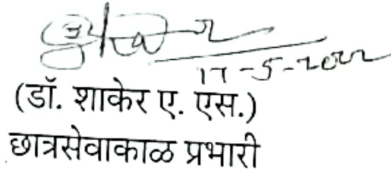 17-5-2022
(डॉ. शाकेर ए. एस.)
छात्रसेवाकाळ प्रभारी